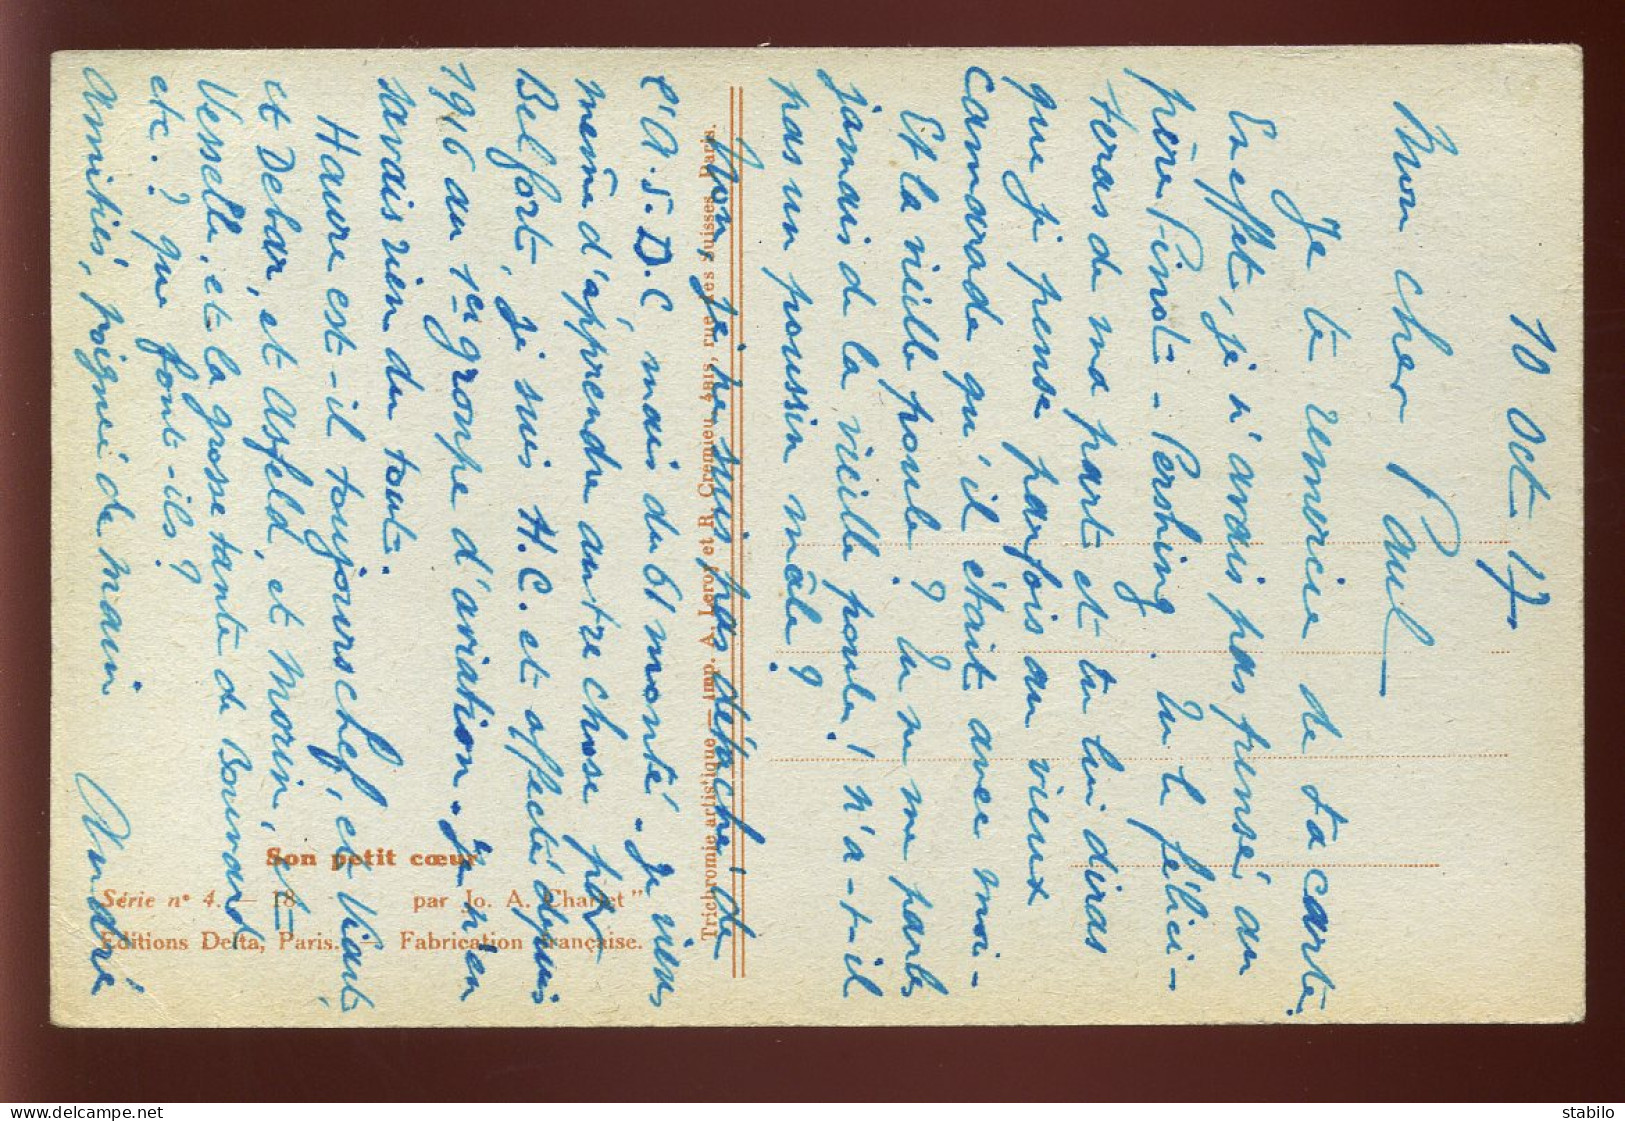 10 Oct. 17
Mon cher Paul
Je te remercie de ta carte.
En effet, je n'avais pas pensé au
père Pinot-Pershing. Tu le félici-
teras de ma part et tu lui diras
que je pense parfois au vieux
camarade qu'il était avec moi-
Et la vieille poule? Tu ne parles
jamais de la vieille poule! N'a-t-il
pas un poussin mâle?
Non je ne suis pas détaché de
l'A.S.D.C, mais du 61 monté. Je viens
même d'apprendre autre chose par
Belfort, je suis H.C. et affecté depuis
1916 au 1er groupe d'aviation. Je n'en
savais rien du tout.
Havre est-il toujours chef, et Viant
et Debar, et Asfeld, et Morin, et
Vesselle, et la grosse tante de Bouvard
etc.? que font-ils?
Amitiés, poignée de main
André
Trichromie artistique — Imp. A. Leroy et R. Crémieu, 4 bis, rue des Suisses, Paris.
Son petit cœur
Série n° 4. — 18 par Jo. A. "Charlet"
Editions Delta, Paris. — Fabrication française.
stabilo
www.delcampe.net